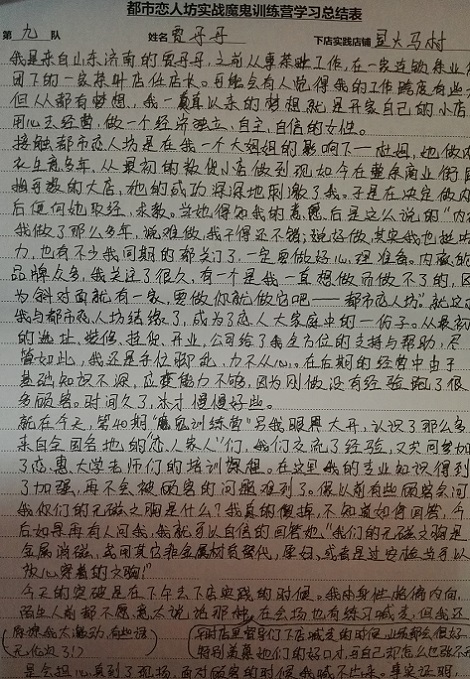 都市恋人坊实战魔鬼训练营学习总结表
第 九 队 姓名 贾丹丹 下店实践店铺 豆火马村
我是来自山东济南的贾丹丹,之前从事茶叶工作,在一家连锁茶业
团下的一家茶叶店任店长。可能会有人觉得我的工作跨度有些
但人都有梦想,我一直以来的梦想就是开家自己的小店
用心去经营,做一个经济独立,自主,自信的女性。
接触都市恋人坊是在我一个大姐姐的影响下——杜姐,她做内
衣生意多年,从最初的散货小店做到现如今在董家商业街
独当数的大店,她的成功深深地刺激了我。于是在决定做
后便向她取经,求教。当她得知我的意愿后是这么说的"内
我做了那么多年,说难做,我干得还不错;说好做,其实我也挺
力,也有不少我同期的都关门了,一定要做好心理准备。内衣的
品牌众多,我关注了很久,有一个是我一直想做而做不了的,因
为斜对面就有一家,要做你就做它吧——都市恋人坊"就这
我与都市恋人坊结缘了,成为了恋人大家庭中的一份子。从最初
的选址、装修、提货、开业,公司给了我全方位的支持与帮助,尽
管如此,我还是手忙脚乱,力不从心。在后期的经营中由于
基础知识不深,应变能力不够,因为刚做没有经验跑了很
多顾客。时间久了,添才慢慢好些。
就在今天,第40期"魔鬼训练营"另我眼界大开,认识了那么多
来自全国各地的"恋人家人"们,我们交流了经验,又共同参加
了恋惠大学老师们的培训课程。在这里我的专业知识得到
了加强,再不会被顾客的问题难到了。像以前有些顾客会问
我你们的无磁文胸是什么?我真的傻掉,不知道如何回答,今
后如果再有人问我,我就可以自信的回答她"我们的无磁文胸是
金属消磁,或用其它非金属材质替代,孕妇,或者是过安检当可以
放心穿着的文胸!"
今天的突破是在下午去下店实践的时候。我本身性格偏内向
陌生人前都不愿意太说话那种,在会场也有练习喊麦,但我还
是会担心真到了现场,面对顾客的时候我喊不出来。事实证明,